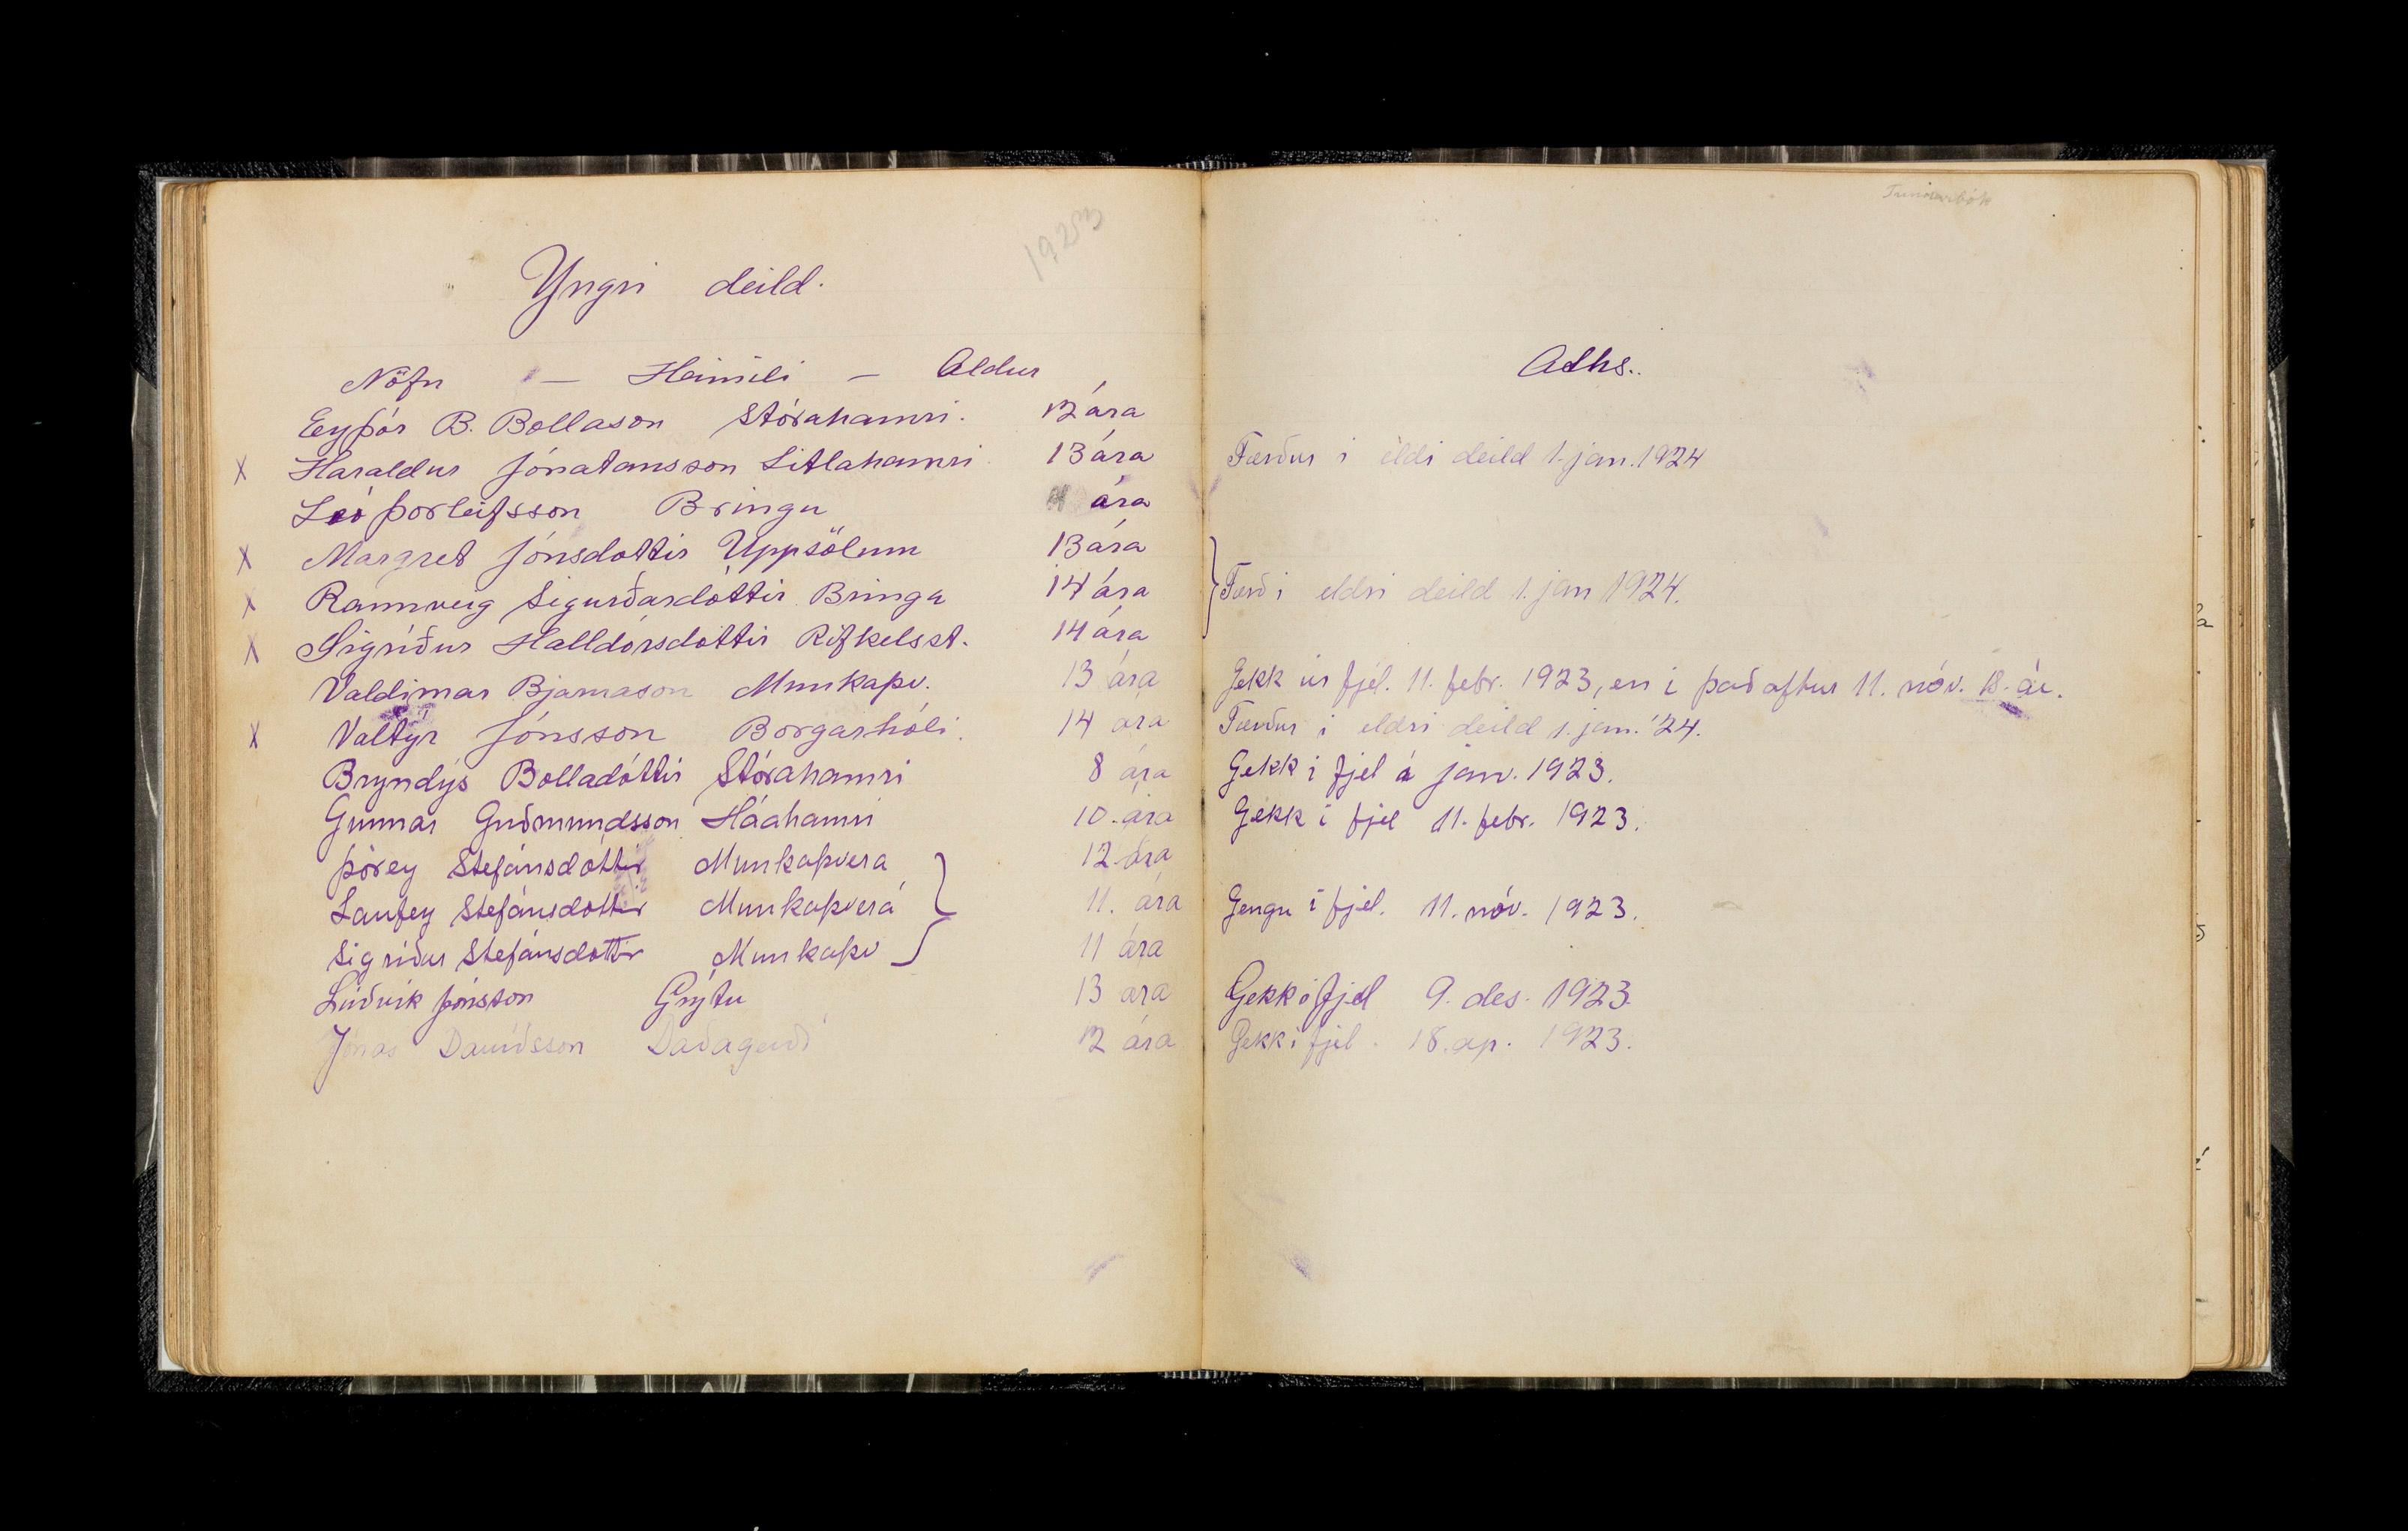 1923
Yngri deild.
Nöfn — Heimili — Aldur
Eyþór B. Bollason Stórahamri. 12 ára
X Haraldur Jónatansson Litlahamri 13 ára
Leó Þorleifsson Bringu ára
X Margret Jónsdottir Uppsölum 13 ára
X Rannveig Sigurðardóttir Bringu 14 ára
X Sigríður Halldórsdóttir Rifkelsst. 14 ára
Valdimar Bjarnason Munkaþv. 13 ára
X Valtýr Jónsson Borgarhóli. 14 ára
Bryndýs Bolladóttir Stórahamri 8 ára
Gunnar Guðmundsson Háahamri 10. ára
Þórey Stefánsdóttir Munkaþvera 12 ára
Laufey Stefánsdóttir Munkaþverá 11. ára
Sigríður Stefánsdóttir Munkaþv 11 ára
Lúðvik Jónsson Grýtu 13 ára
Jónas Davíðsson Daðagerði 12 ára
Aths..
Færður i eldi deild 1. jan. 1924
Færð i eldri deild 1. jan 1924.
Gekk úr fjel. 11. febr. 1923, en i það aftur 11. nóv. s. ár.
Færður i eldri deild 1. jan. '24.
Gekk i fjel á jan. 1923.
Gekk i fjel 11. febr. 1923.
Gengu i fjel. 11. nóv. 1923.
Gekk i fjel 9. des. 1923.
Gekk i fjel. 18. ap. 1923.